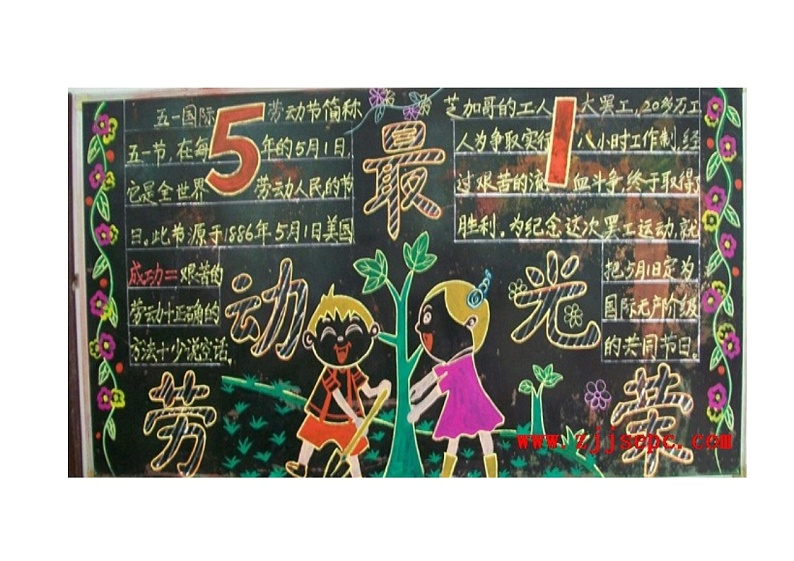 五一国际劳动节简称
五一节,在每年的5月1日,
它是全世界劳动人民的节
日。此节源于1886年5月1日美国
芝加哥的工人大罢工,20多万工
人为争取实行八小时工作制,经
过艰苦的流血斗争,终于取得
胜利。为纪念这次罢工运动,就
把5月1日定为
国际无产阶级
的共同节日。
5 1
成功=艰苦的
劳动+正确的
方法+少说空话。
劳动最光荣
www.zjjscpc.com